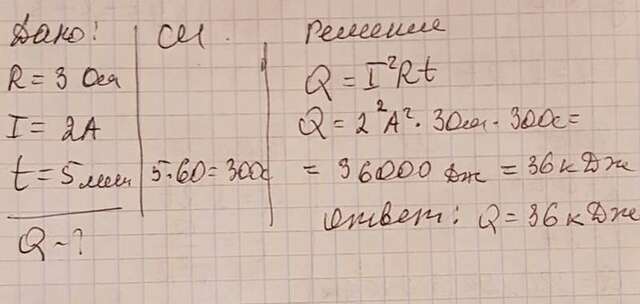 Дано:
R = 3 Ом
I = 2А
t = 5 мин
Q - ?
СИ.
5·60=300с
Решение
Q = I²Rt
Q = 2²А²·3Ом·300с=
= 36000 Дж = 36кДж
Ответ: Q = 36кДж